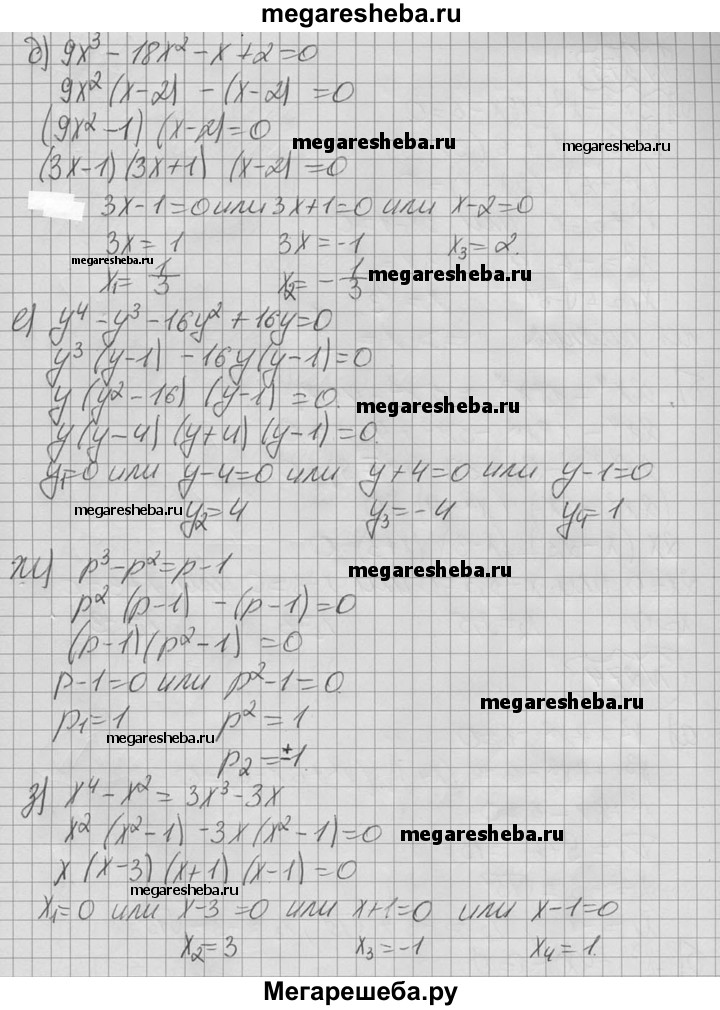 megaresheba.ru
д) 9x³ - 18x² - x + 2 = 0
9x² (x-2) - (x-2) = 0
(9x² - 1) (x-2) = 0
megaresheba.ru
megaresheba.ru
(3x-1) (3x+1) (x-2) = 0
3x-1=0 или 3x+1=0 или x-2=0
3x = 1 3x = -1 x₃ = 2.
megaresheba.ru
x₁ = 1/3 x₂ = - 1/3
megaresheba.ru
е) y⁴ - y³ - 16y² + 16y = 0
y³ (y-1) - 16y (y-1) = 0
y (y² - 16) (y-1) = 0.
megaresheba.ru
y (y-4) (y+4) (y-1) = 0.
y₁=0 или y-4=0 или y+4=0 или y-1=0
megaresheba.ru
y₂ = 4 y₃ = -4 y₄ = 1
ж) p³ - p² = p - 1
megaresheba.ru
p² (p-1) - (p-1) = 0
(p-1) (p² - 1) = 0
p-1=0 или p²-1=0.
megaresheba.ru
p₁ = 1 p² = 1
megaresheba.ru
p₂ = ±1.
з) x⁴ - x² = 3x³ - 3x
x² (x² - 1) - 3x (x² - 1) = 0
megaresheba.ru
x (x-3) (x+1) (x-1) = 0
megaresheba.ru
x₁=0 или x-3=0 или x+1=0 или x-1=0
x₂ = 3 x₃ = -1 x₄ = 1.
Мегарешеба.ру